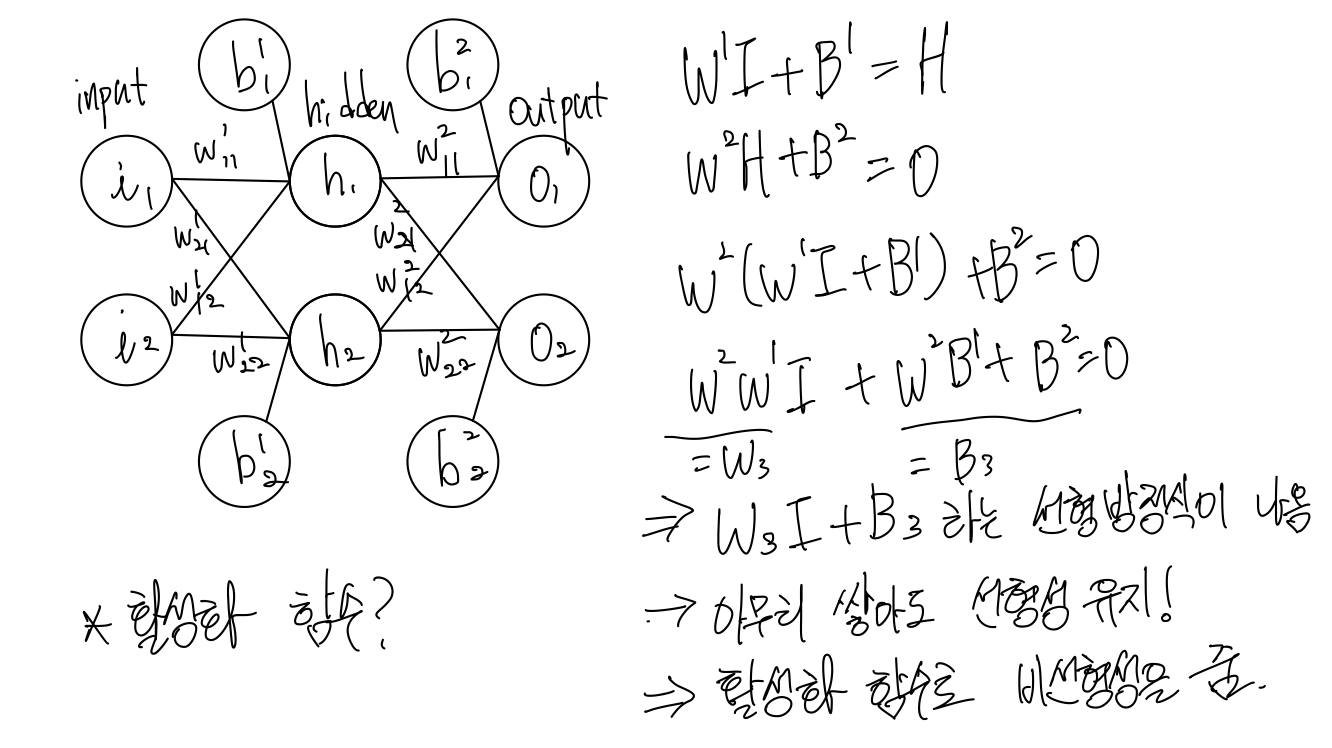 b₁¹ b₁²
input hidden output
i₁ w₁₁¹ h₁ w₁₁² O₁
w₂₁¹ w₂₁²
w₁₂¹ w₁₂²
i₂ w₂₂¹ h₂ w₂₂² O₂
b₂¹ b₂²
* 활성화 함수?
W¹I + B¹ = H
W²H + B² = O
W²(W¹I + B¹) + B² = O
W²W¹I + W²B¹ + B² = O
= W₃ = B₃
⇒ W₃I + B₃ 하는 선형방정식이 나옴
→ 아무리 쌓아도 선형성 유지!
⇒ 활성화 함수로 비선형성을 줌.